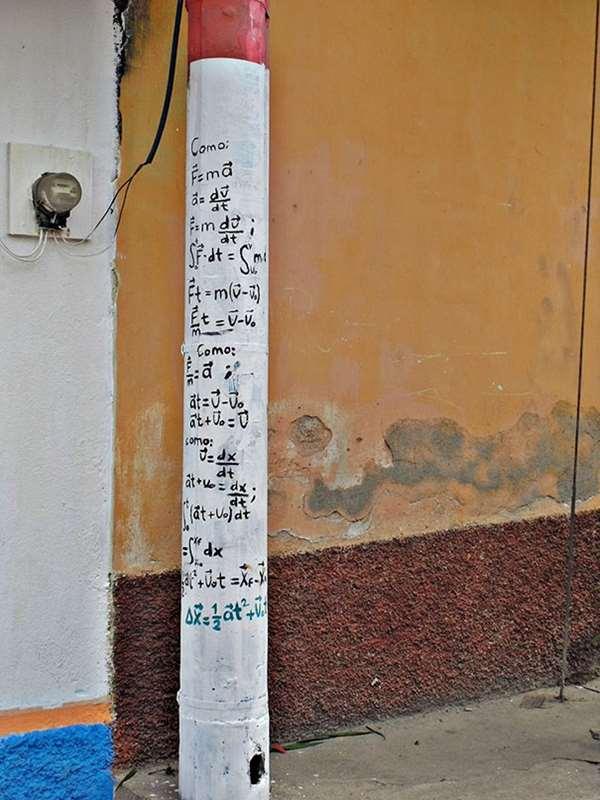 Como:
F⃗=ma⃗
a⃗=dv⃗/dt
F⃗=m dv⃗/dt;
∫F⃗·dt=∫m
F⃗t=m(v⃗-v⃗₀)
F⃗/m t=v⃗-v⃗₀
Como:
F⃗/m=a⃗;
a⃗t=v⃗-v⃗₀
a⃗t+v⃗₀=v⃗
como:
v⃗=dx⃗/dt
a⃗t+v₀=dx⃗/dt;
∫(a⃗t+v₀)dt
=∫dx
t²+v⃗₀t=x⃗f-x⃗
Δx⃗=1/2a⃗t²+v⃗₀t